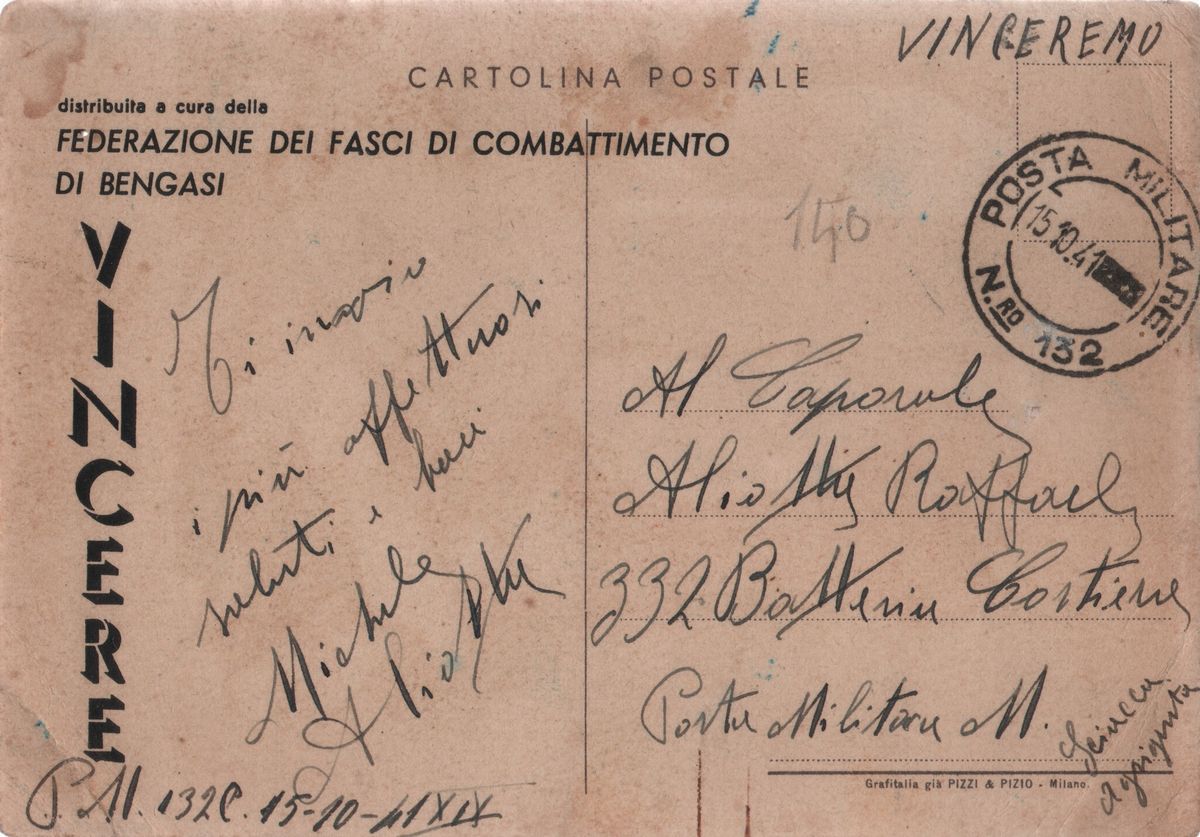 VINCEREMO
CARTOLINA POSTALE
distribuita a cura della
FEDERAZIONE DEI FASCI DI COMBATTIMENTO
DI BENGASI
VINCERE
Ti invio
i più affettuosi
saluti e baci
Michele
Aliotta
P.M. 132C. 15-10-41 XIX
140
POSTA MILITARE
15.10.41
N.RO 132
Al Caporale
Aliotta Raffaele
332 Batteria Costiera
Posta Militare M.
Sciacca
Agrigento
Grafitalia già PIZZI & PIZIO - Milano.